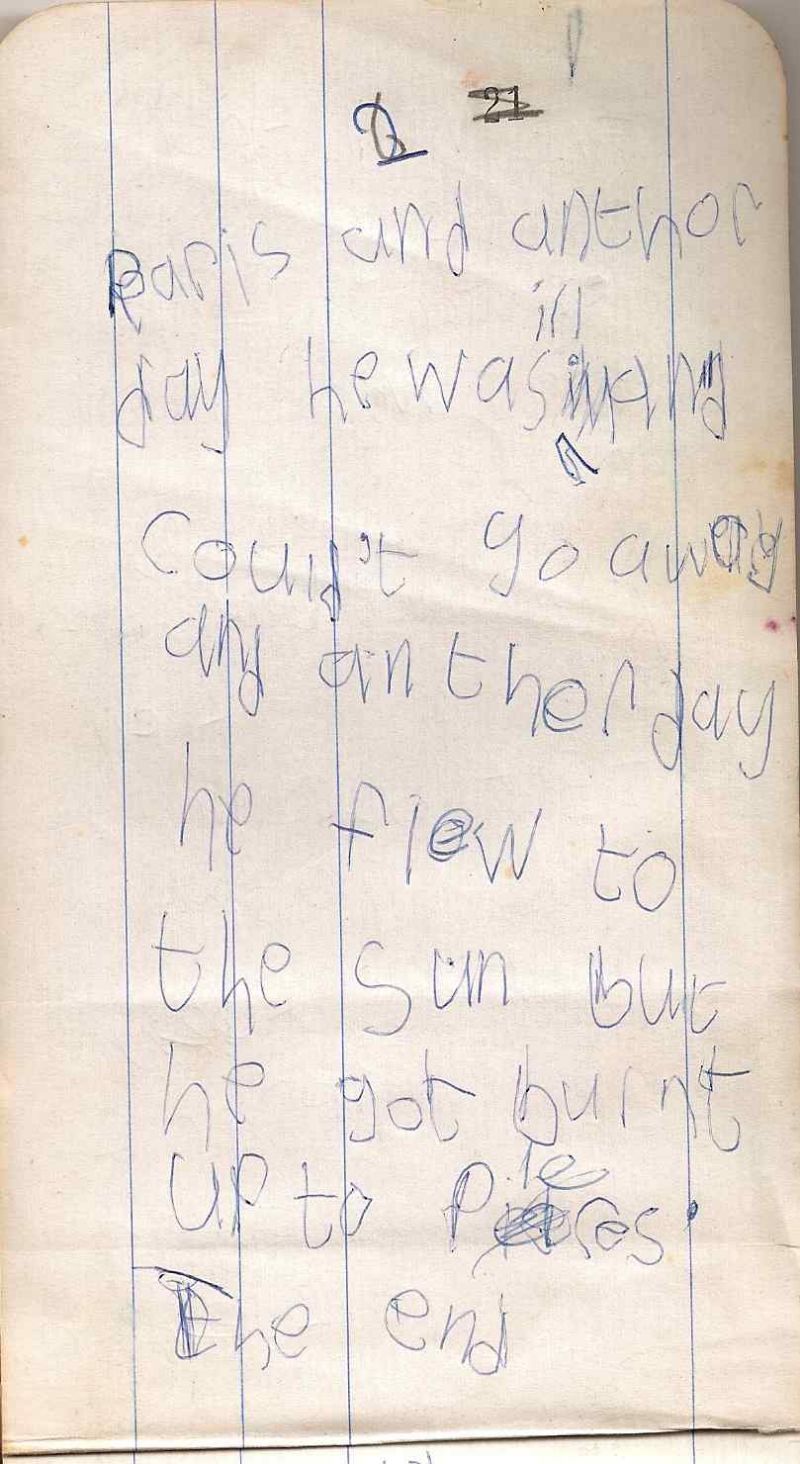 21
Paris and anthor
day he was ill and
Could't go away
and an ther day
he flew to
the sun but
he got burnt
up to Pieces.
The end